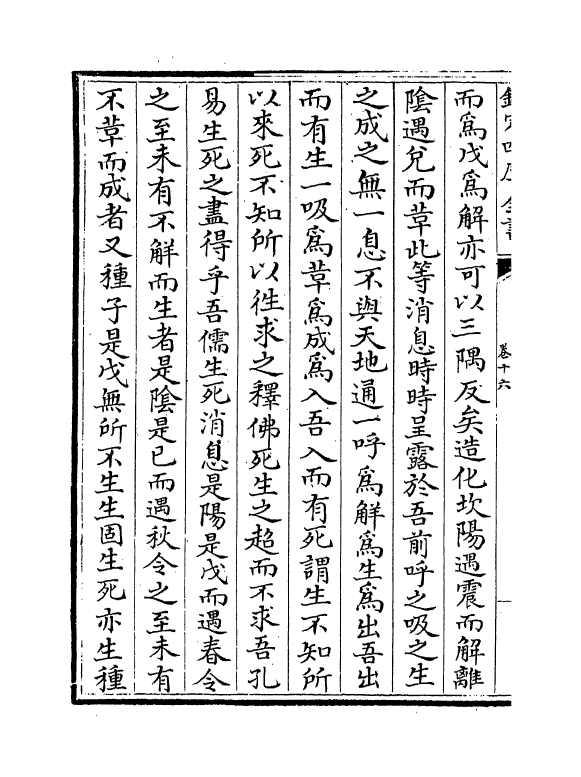 欽定四庫全書
卷十六
而爲戊爲解亦可以三隅反矣造化坎陽遇震而解離
陰遇兌而革此等消息時時呈露於吾前呼之吸之生
之成之無一息不與天地通一呼爲解爲生爲出吾出
而有生一吸爲革爲成爲入吾入而有死謂生不知所
以來死不知所以徃求之釋佛死生之超而不求吾孔
易生死之盡得乎吾儒生死消息是陽是戊而遇春令
之至未有不解而生者是陰是已而遇秋令之至未有
不革而成者又種子是戊無所不生生固生死亦生種